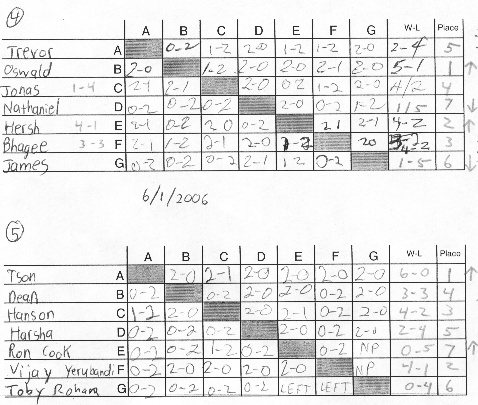 ④
A B C D E F G W-L Place
Trevor A 0-2 1-2 2-0 1-2 1-2 2-0 2-4 5
Oswald B 2-0 1-2 2-0 2-0 2-1 2-0 5-1 1 ↑
Jonas 1-4 C 2-1 2-1 2-0 0-2 1-2 2-0 4/2 4
Nathaniel D 0-2 0-2 0-2 2-0 0-2 1-2 1/5 7 ↓
Hersh 4-1 E 2-1 0-2 2 0 0-2 2 1 2-1 4-2 2 ↑
Bhagee 3-3 F 2-1 1-2 2-1 2-0 1-2 20 4-2 3
James G 0-2 0-2 0-2 2-1 1-2 0-2 1-5 6 ↓
6/1/2006
⑤
A B C D E F G W-L Place
Tson A 2-0 2-1 2-0 2-0 2-0 2-0 6-0 1 ↑
Dean B 0-2 0-2 2-0 2-0 0-2 2-0 3-3 4
Hanson C 1-2 2-0 2-0 2-1 0-2 2-0 4-2 3
Harsha D 0-2 0-2 0-2 2-0 0-2 2-0 2-4 5
Ron Cook E 0-2 0-2 1-2 0-2 0-2 NP 0-5 7 ↑
Vijay Yerubandi F 0-2 2-0 2-0 2-0 2-0 NP 4-1 2
Toby Rohana G 0-2 0-2 0-2 0-2 LEFT LEFT 0-4 6